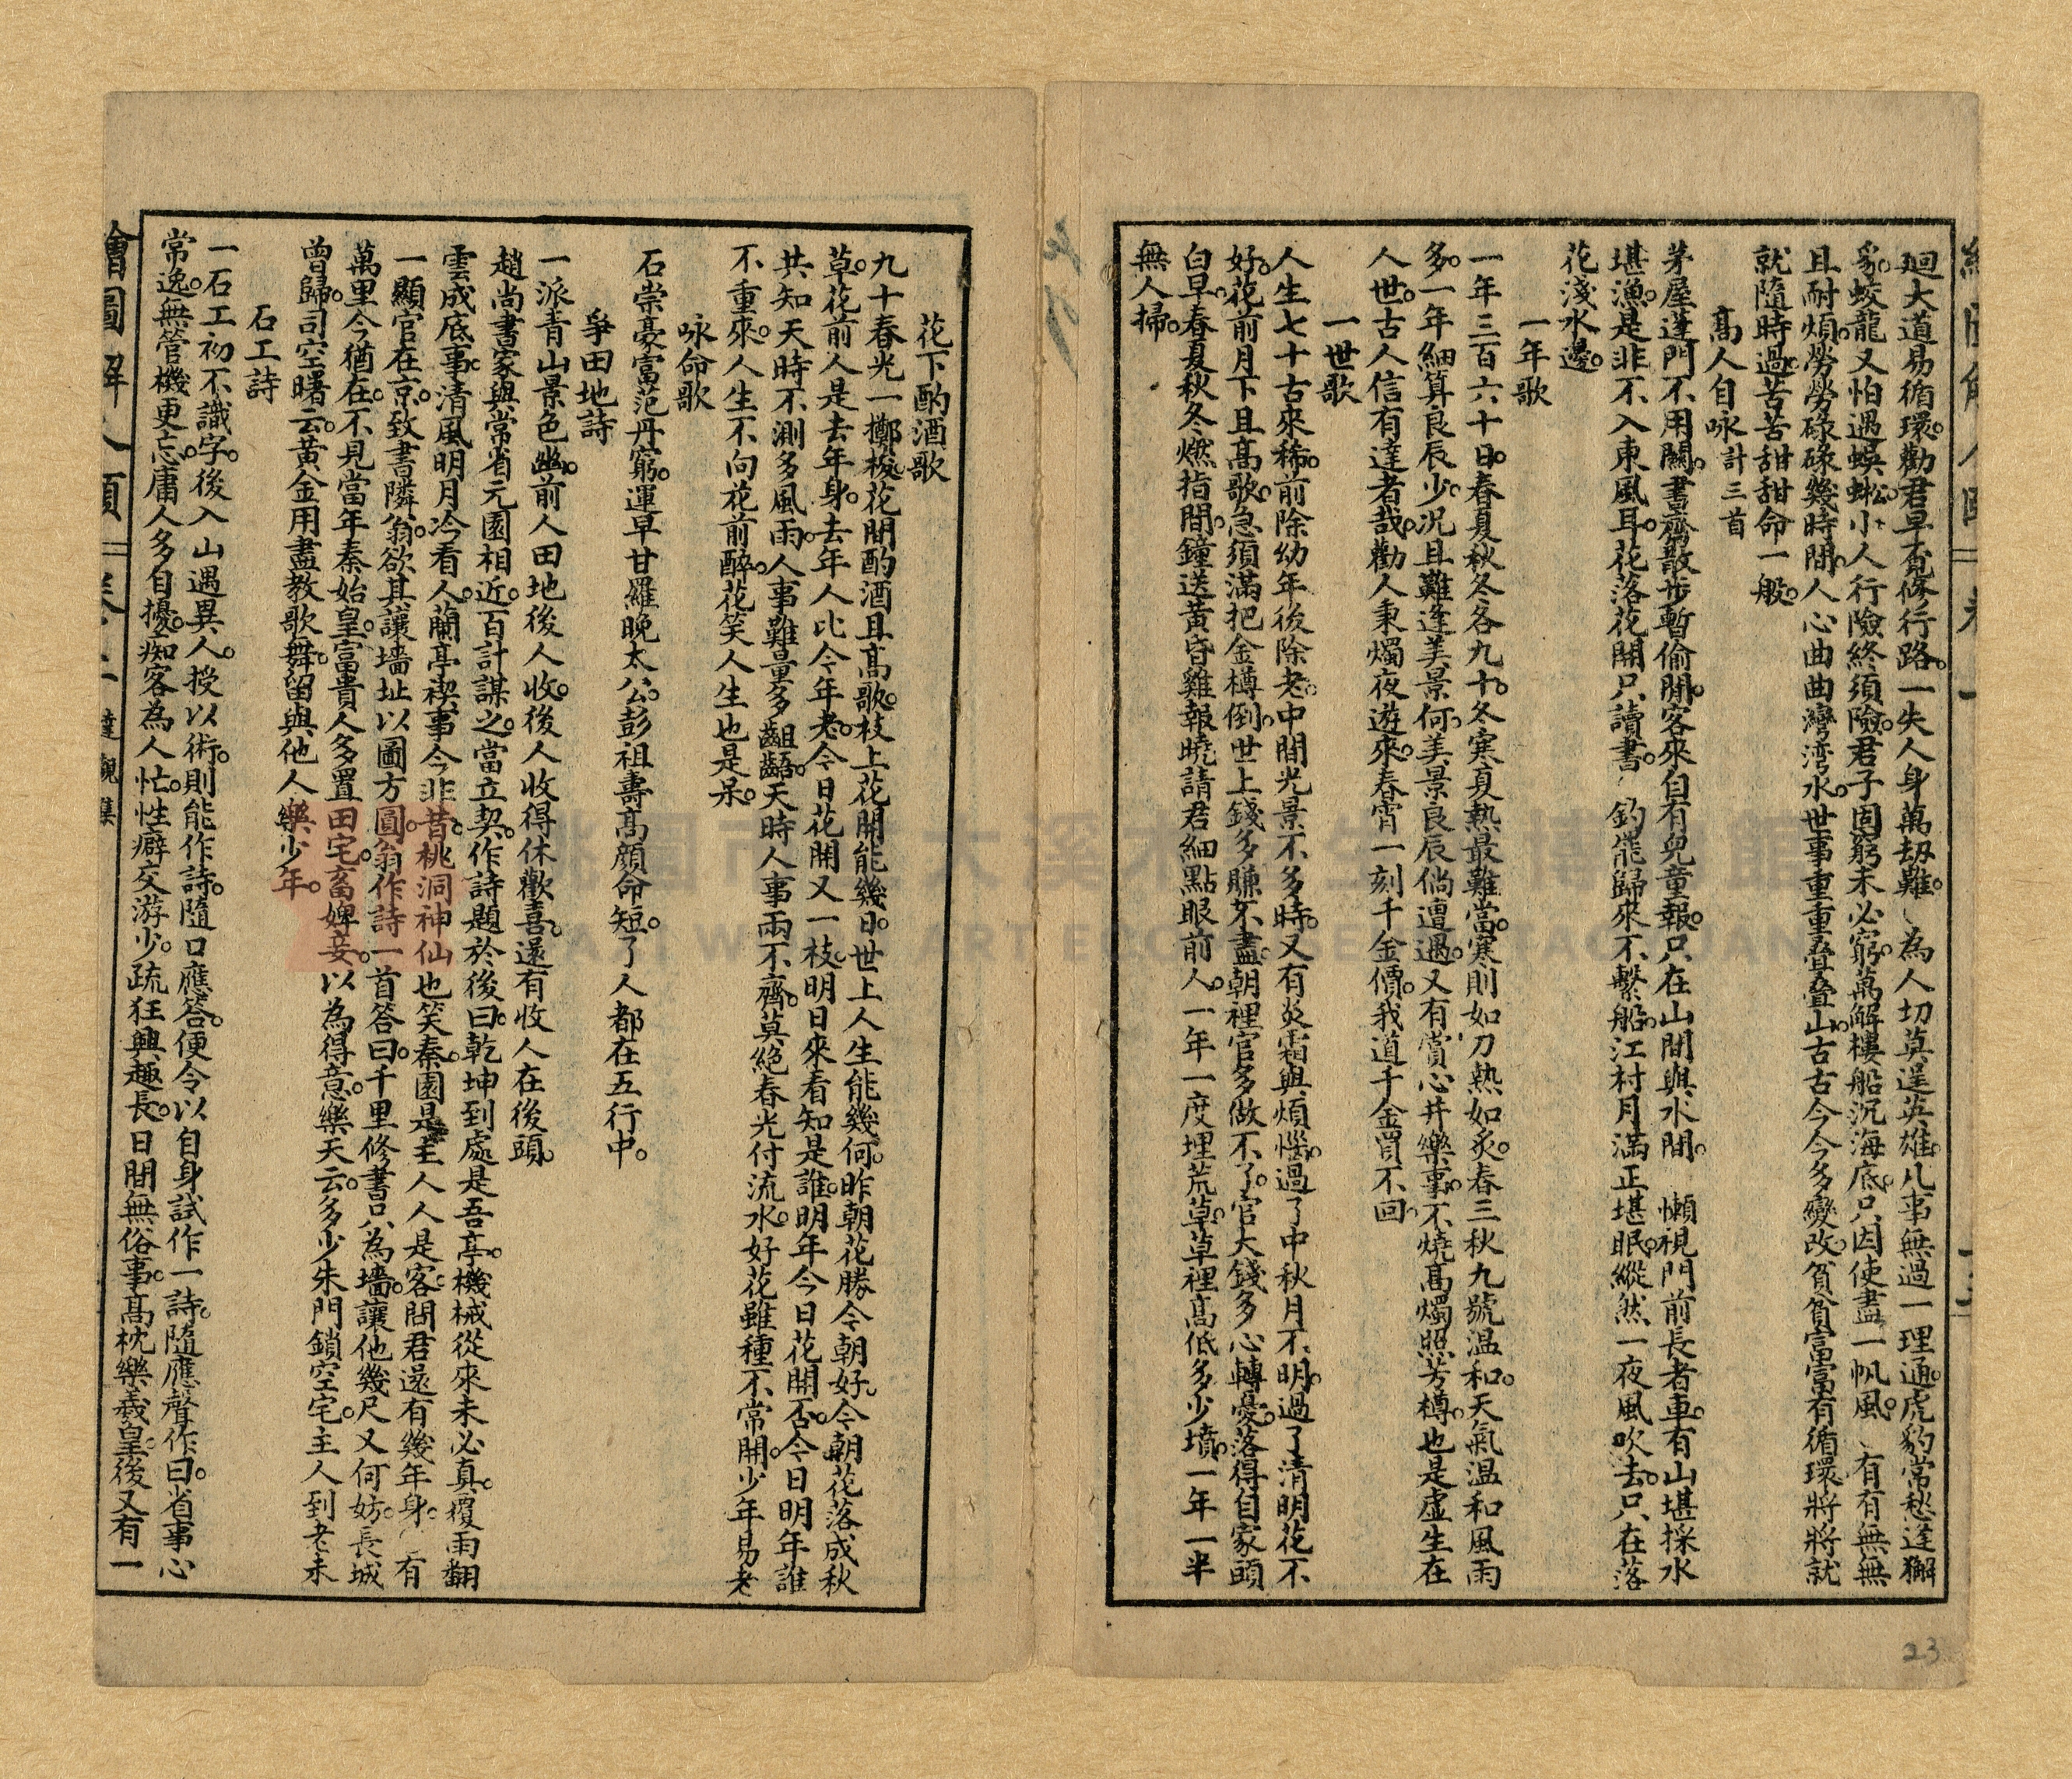 廻大道易循環。勸君早覔修行路。一失人身萬刼難。為人切莫逞英雄。凡事無過一理通。虎豹常愁逢獬
豸。蛟龍又怕遇蜈蚣。小人行險終須險。君子固窮未必窮。萬斛樓船沉海底。只因使盡一帆風。有有無無
且耐煩。勞勞碌碌幾時閒。人心曲曲灣灣水。世事重重叠叠山。古古今今多變改。貧貧富富有循環。將將就
就隨時過。苦苦甜甜命一般。
高人自咏計三首
茅屋蓬門不用關。書齋散步暫偷閒。客來自有兒童報。只在山間與水間。懶視門前長者車。有山堪採水
堪漁。是非不入東風耳。花落花開只讀書。釣罷歸來不繫船。江村月滿正堪眠。縱然一夜風吹去。只在落
花淺水邊。
一年歌
一年三百六十日。春夏秋冬各九十。冬寒夏熱最難當。寒則如刀熱如炙。春三秋九號温和。天氣温和風雨
多。一年細算良辰少。况且難逢美景何。美景良辰倘遭遇。又有賞心并樂事。不燒高燭照芳樽。也是虛生在
人世。古人信有達者哉。勸人秉燭夜遊來。春宵一刻千金價。我道千金買不回。
一世歌
人生七十古來稀。前除幼年後除老。中間光景不多時。又有炎霜與煩惱。過了中秋月不明。過了清明花不
好。花前月下且高歌。急須滿把金樽倒。世上錢多賺不盡。朝裡官多做不了。官大錢多心轉憂。落得自家頭
白早。春夏秋冬燃指間。鐘送黃昏雞報曉。請君細點眼前人。一年一度埋荒草。草裡高低多少墳。一年一半
無人掃。
花下酌酒歌
九十春光一擲梭。花間酌酒且高歌。枝上花開能幾日。世上人生能幾何。昨朝花勝今朝好。今朝花落成秋
草。花前人是去年身。去年人比今年老。今日花開又一枝。明日來看知是誰。明年今日花開否。今日明年誰
共知。天時不測多風雨。人事難量多齟齬。天時人事兩不齊。莫絕春光付流水。好花雖種不常開。少年易老
不重來。人生不向花前醉。花笑人生也是呆。
咏命歌
石崇豪富范丹窮。運早甘羅晚太公。彭祖壽高顏命短。了人都在五行中。
爭田地詩
一派青山景色幽。前人田地後人收。後人收得休歡喜。還有收人在後頭。
趙尚書家與常省元園相近。百計謀之。當立契。作詩題於後曰。乾坤到處是吾亭。機械從來未必真。覆雨翻
雲成底事。清風明月冷看人。蘭亭禊事今非昔。桃洞神仙也笑秦。園是主人人是客。問君還有幾年身。有
一顯官在京。致書隣翁。欲其讓墻址以圖方圓。翁作詩一首答曰。千里修書只為墻。讓他幾尺又何妨。長城
萬里今猶在。不見當年秦始皇。富貴人多置田宅。畜婢妾。以為得意。樂天云。多少朱門鎖空宅。主人到老未
曾歸。司空曙云。黃金用盡教歌舞。留與他人樂少年。
石工詩
一石工初不識字。後入山遇異人。授以術。則能作詩。隨口應答。便令以自身試作一詩。隨應聲作曰。省事心
常逸。無管機更忘。庸人多自擾。痴客為人忙。性癖交游少。疏狂興趣長。日間無俗事。高枕樂羲皇。後又有一
繪圖解人頤 卷二 達觀集
23